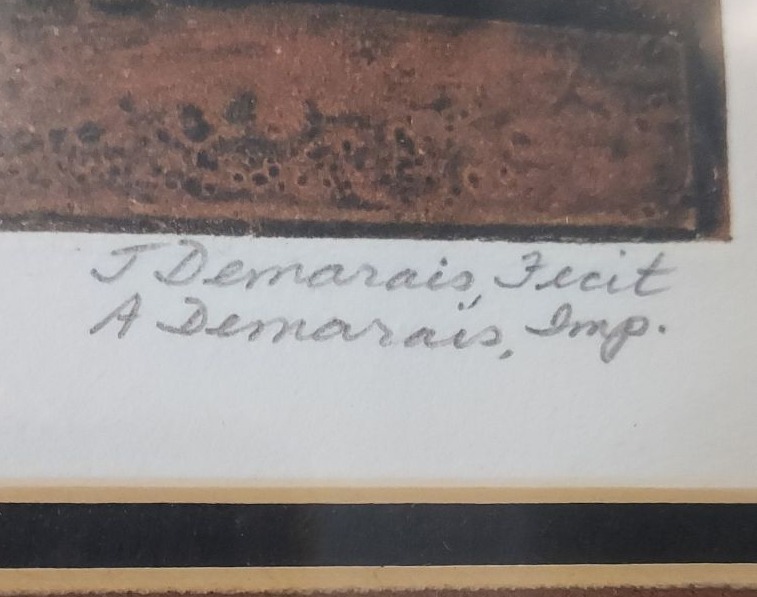 J Demarais, Fecit
A Demarais, Imp.